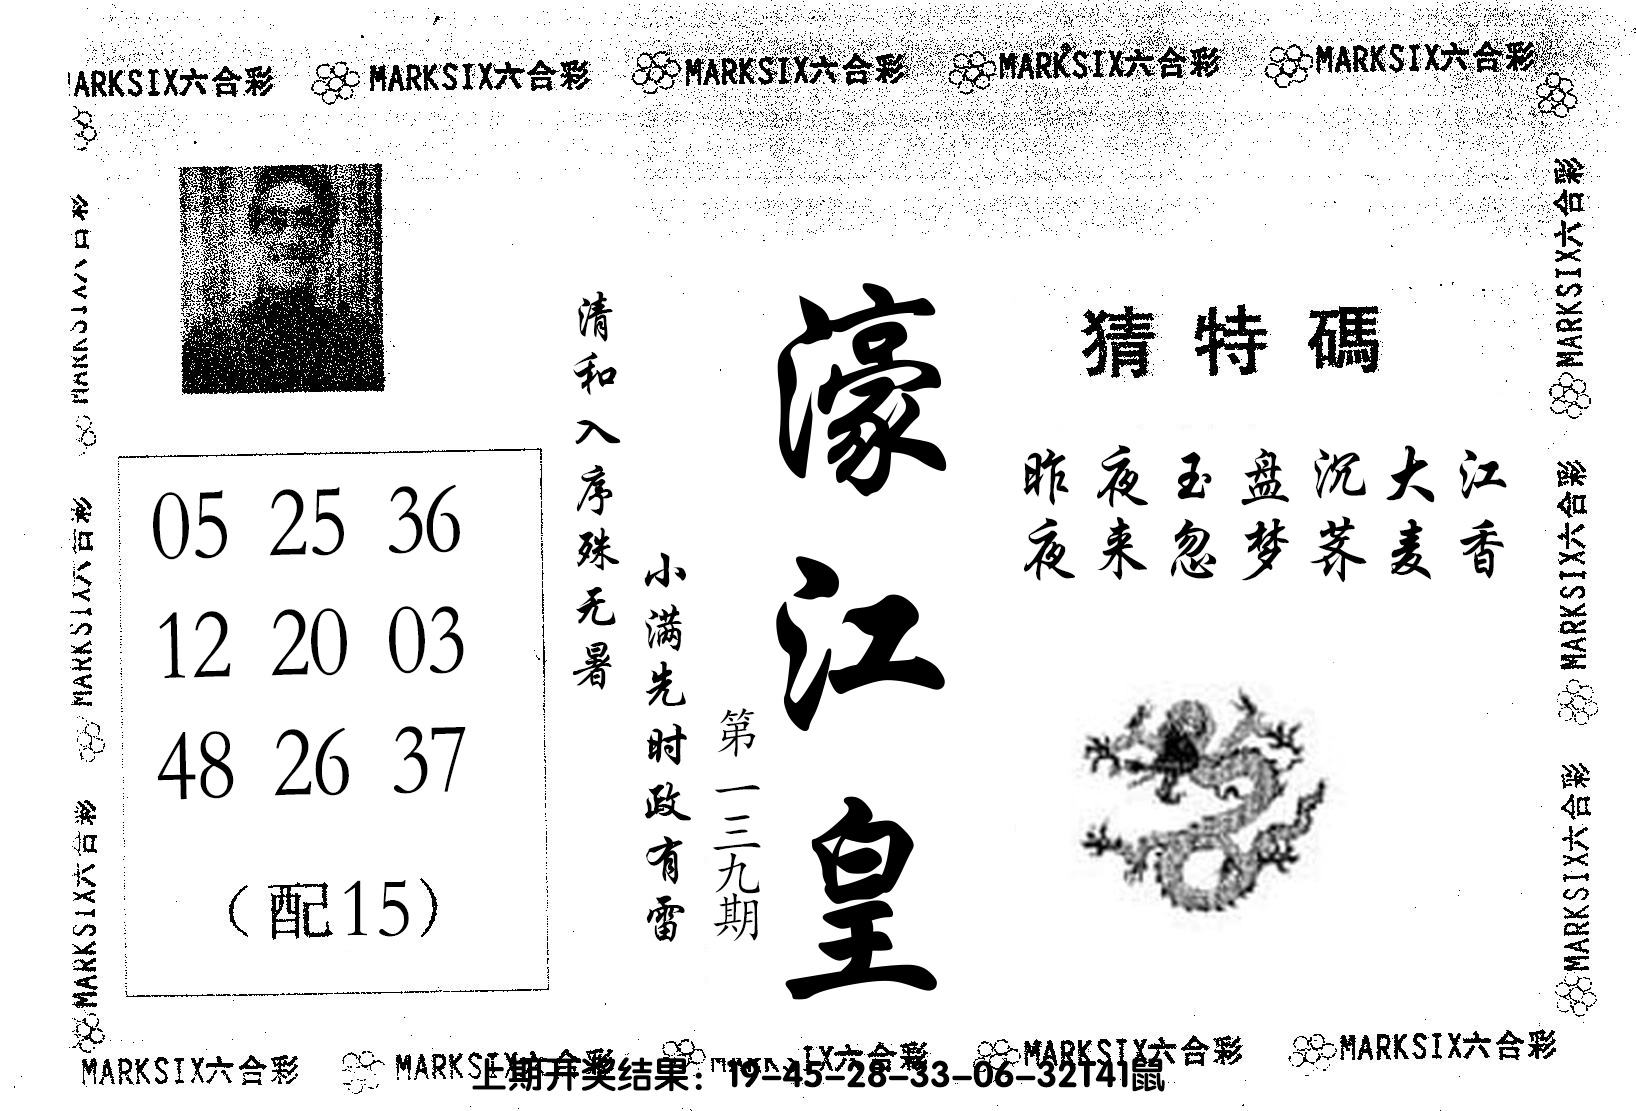 MARKSIX六合彩 MARKSIX六合彩 MARKSIX六合彩 MARKSIX六合彩 MARKSIX六合彩
猜特碼
昨夜玉盘沉大江
夜来忽梦荞麦香
濠江皇
第一三九期
清和入序殊无暑
小满先时政有雷
05 25 36
12 20 03
48 26 37
(配15)
MARKSIX六合彩
MARKSIX六合彩
MARKSIX六合彩
MARKSIX六合彩
MARKSIX六合彩
MARKSIX六合彩
MARKSIX六合彩 MARKSIX六合彩 MARKSIX六合彩 MARKSIX六合彩
上期开奖结果：19-45-28-33-06-32T41鼠